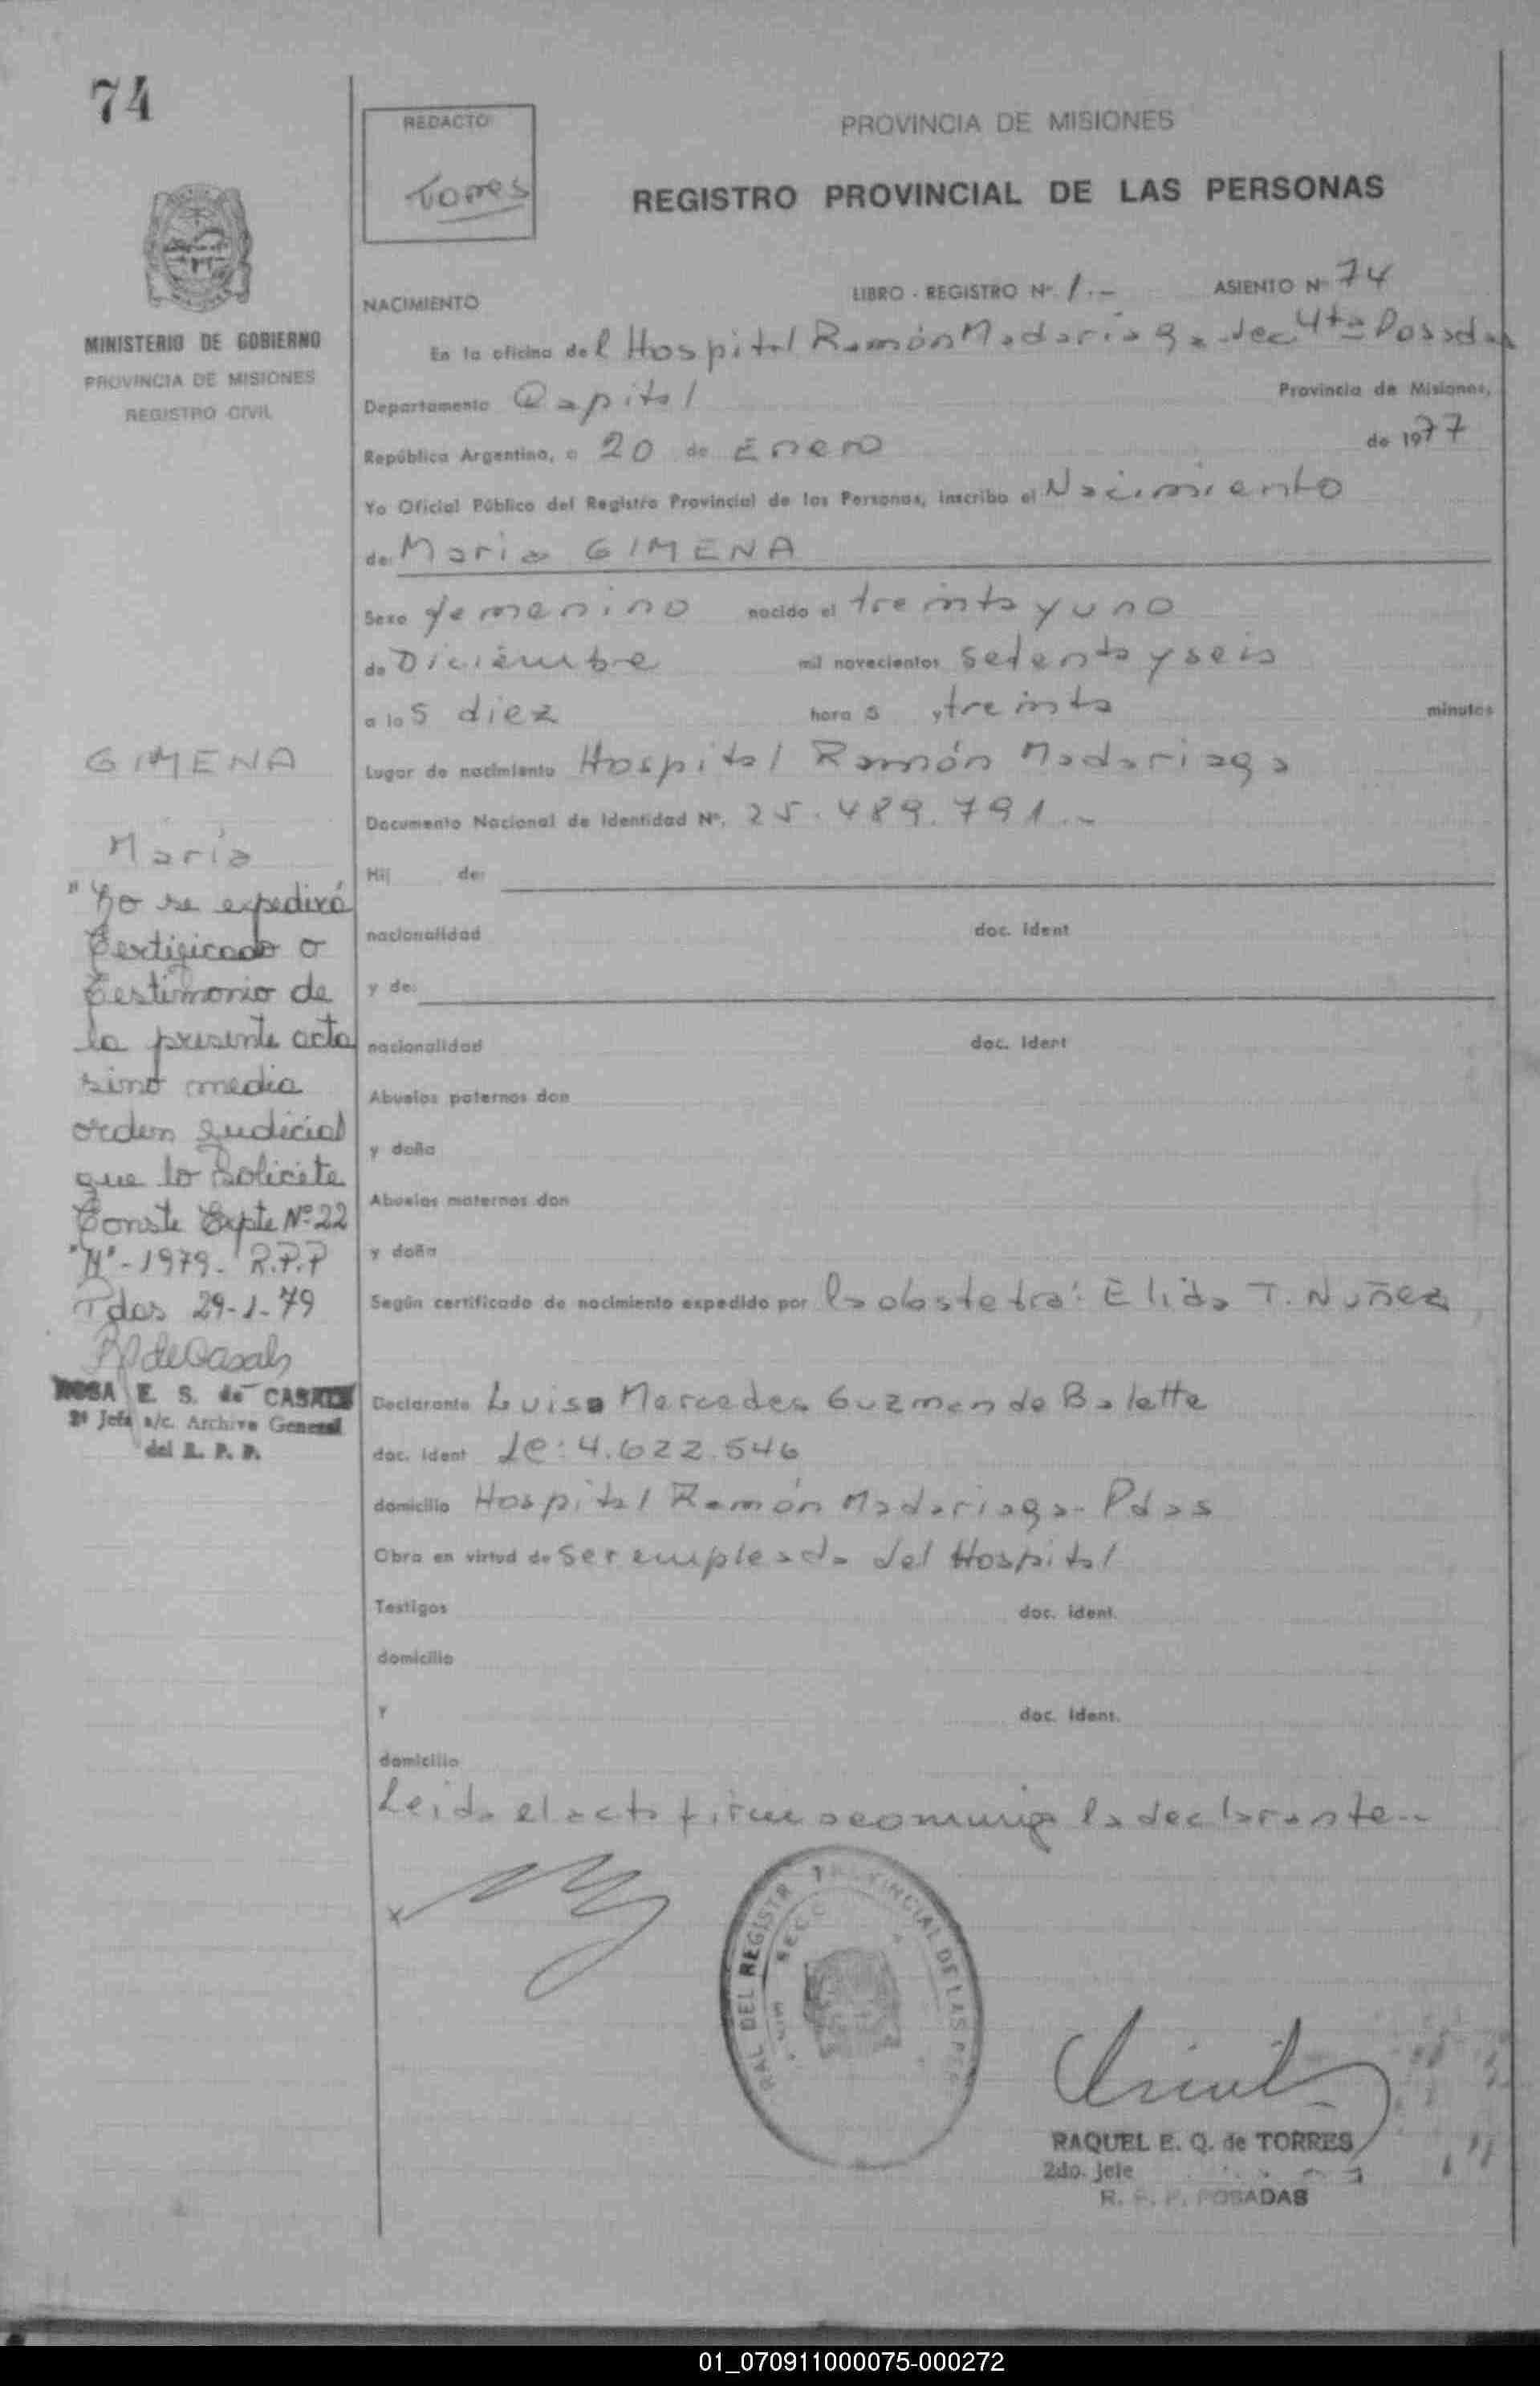 74
REDACTO
Torres
PROVINCIA DE MISIONES
REGISTRO PROVINCIAL DE LAS PERSONAS
MINISTERIO DE GOBIERNO
PROVINCIA DE MISIONES
REGISTRO CIVIL
NACIMIENTO LIBRO - REGISTRO Nº. 1.- ASIENTO Nº 74
En la oficina del Hospital Ramón Madariaga - Secc 4ta Posadas
Departamento Capital Provincia de Misiones,
República Argentina, a 20 de Enero de 1977
Yo Oficial Público del Registro Provincial de las Personas, inscribo el Nacimiento
de: Maria GIMENA
Sexo femenino nacido el treinta y uno
de Diciembre mil novecientos setenta y seis
a las diez horas y treinta minutos
Lugar de nacimiento Hospital Ramón Madariaga
Documento Nacional de Identidad Nº. 25.489.791.-
Hij de:
nacionalidad doc. ident
y de:
nacionalidad doc. ident
Abuelos paternos don
y doña
Abuelos maternos don
y doña
Según certificado de nacimiento expedido por la obstetra: Elida T. Nuñez
Declarante Luisa Mercedes Guzman de Balette
doc. ident LC: 4.622.546
domicilio Hospital Ramón Madariaga - Pdas
Obra en virtud de ser empleada del Hospital
Testigos doc. ident.
domicilio
Y doc. ident.
domicilio
Leida el acta firma conmigo la declarante.-
GIMENA
María
"No se expedirá
Certificado o
Testimonio de
la presente acta
sino media
orden judicial
que lo solicite
Conste Expte Nº 22
"M"-1979. R.P.P
Pdas 29-1-79
ROSA E. S. de CASALS
2º Jefe a/c. Archivo General
del R. P. P.
RAL DEL REGISTR PROVINCIAL DE LAS PER
SECC
RAQUEL E. Q. de TORRES
2do. Jefe
R. P. P. POSADAS
01_070911000075-000272